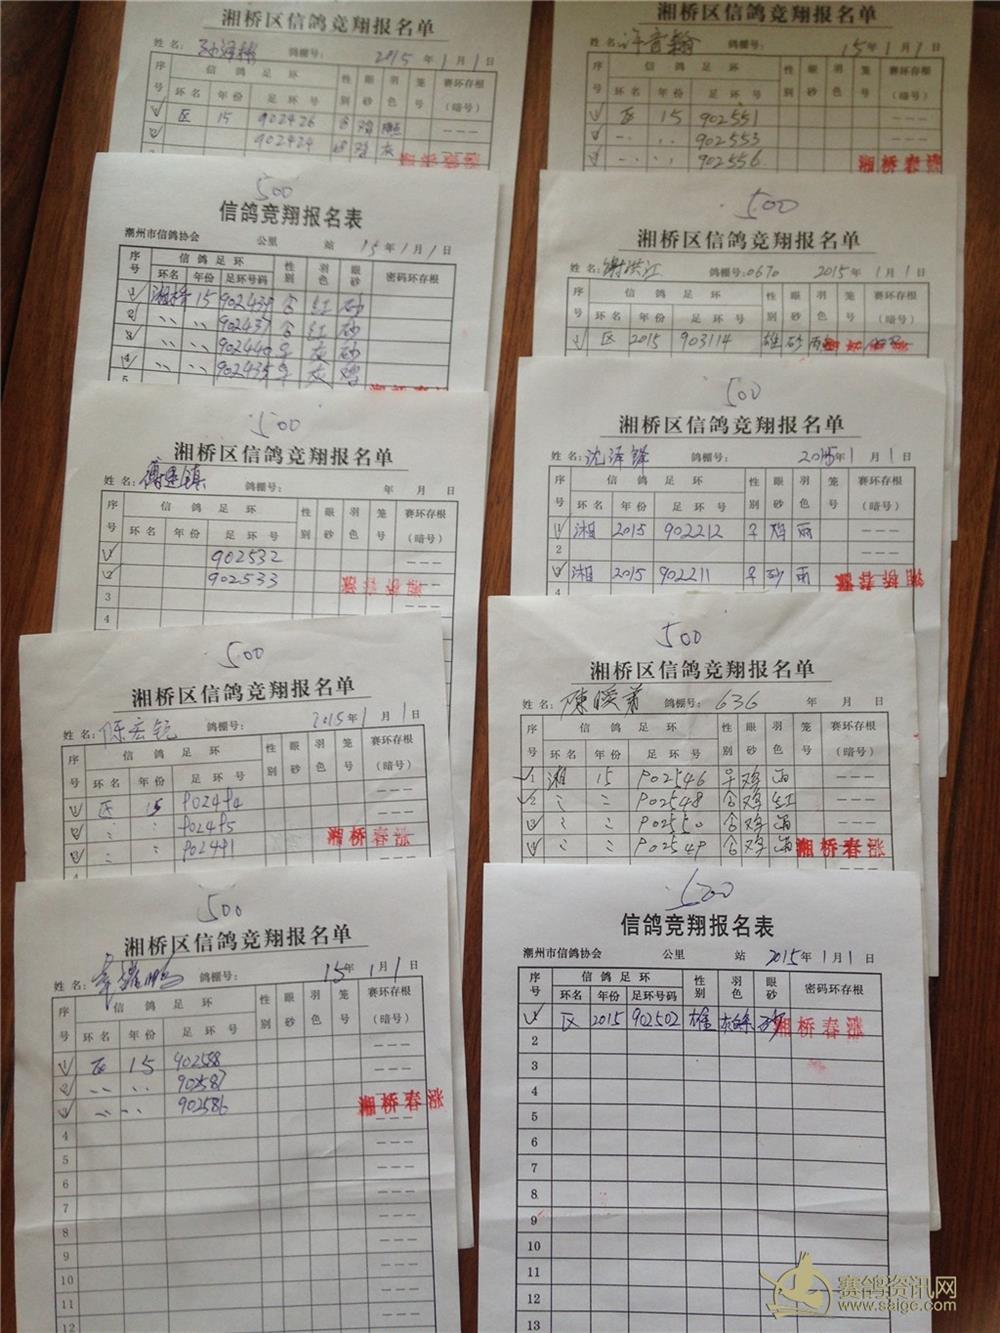 湘桥区信鸽竞翔报名单
姓名: 孙泽彬 鸽棚号: 2015年1月1日
序号 信鸽足环 性别 眼砂 羽色 笼号 赛环存根(暗号)
环名 年份 足环号
1 区 15 902426
2 902424 灰
湘桥春涨
湘桥区信鸽竞翔报名单
姓名: 许音翰 鸽棚号: 15年1月1日
序号 信鸽足环 性别 眼砂 羽色 笼号 赛环存根(暗号)
环名 年份 足环号
区 15 902551
902553
902556
湘桥春涨
500
信鸽竞翔报名表
潮州市信鸽协会 公里 站 15年1月1日
序号 信鸽足环 性别 羽色 眼砂 密码环存根
环名 年份 足环号码
1 湘桥 15 902439 合 红 砂
2 〃 〃 902437 合 红 砂
3 〃 〃 902440 早 灰 砂
4 〃 〃 902435 早 灰
5
500
湘桥区信鸽竞翔报名单
姓名: 谢洪江 鸽棚号: 0670 2015年1月1日
序号 信鸽足环 性别 眼砂 羽色 笼号 赛环存根(暗号)
环名 年份 足环号
1 区 2015 903114 雄 砂 雨
500
湘桥区信鸽竞翔报名单
姓名: 镇 鸽棚号: 年 月 日
序号 信鸽足环 性别 眼砂 羽色 笼号 赛环存根(暗号)
环名 年份 足环号
1 902532
2 902533
湘桥春涨
3
4
500
湘桥区信鸽竞翔报名单
姓名: 沈泽锋 鸽棚号: 2015年1月1日
序号 信鸽足环 性别 眼砂 羽色 笼号 赛环存根(暗号)
环名 年份 足环号
1 湘 2015 902212 早 鸡 雨
2
3 湘 2015 902211 早 砂 雨
湘桥春涨
500
湘桥区信鸽竞翔报名单
姓名: 陈宏锐 鸽棚号: 2015年1月1日
序号 信鸽足环 性别 眼砂 羽色 笼号 赛环存根(暗号)
环名 年份 足环号
1 区 15 902494
2 902495
3 902491
湘桥春涨
500
湘桥区信鸽竞翔报名单
姓名: 陳 鸽棚号: 636 年 月 日
序号 信鸽足环 性别 眼砂 羽色 笼号 赛环存根(暗号)
环名 年份 足环号
1 湘 15 902546 早 鸡 雨
2 902548 合 鸡 红
3 902550 合 鸡 雨
4 902549 合 鸡 雨
湘桥春涨
500
湘桥区信鸽竞翔报名单
姓名: 鸽棚号: 15年1月1日
序号 信鸽足环 性别 眼砂 羽色 笼号 赛环存根(暗号)
环名 年份 足环号
1 区 15 902588
2 〃 〃 902587
3 〃 〃 902586
湘桥春涨
4
5
6
7
8
9
10
11
12
500
信鸽竞翔报名表
潮州市信鸽协会 公里 站 2015年1月1日
序号 信鸽足环 性别 羽色 眼砂 密码环存根
环名 年份 足环号码
1 区 2015 902502 雄 砂
湘桥春涨
2
3
4
5
6
7
8
9
10
11
12
13
赛鸽资讯网
www.saige.com